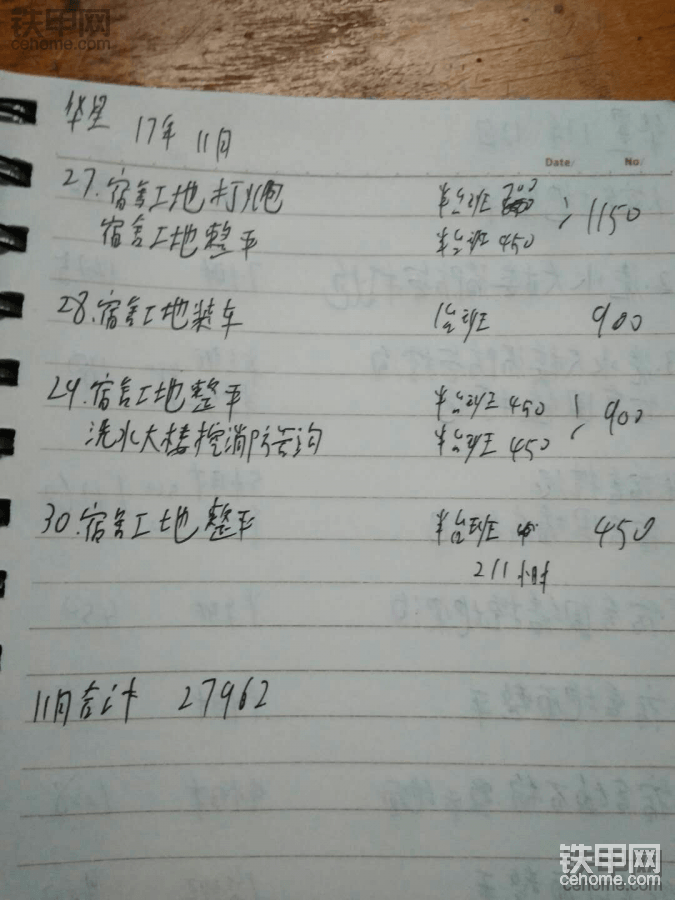 铁甲网
cehome.com
华星 17年 11月
Date/ No/
27.宿舍工地打炮 半台班 700 } 1150
宿舍工地整平 半台班 450
28.宿舍工地装车 1台班 900
29.宿舍工地整平 半台班 450 } 900
洗水大楼挖消防管沟 半台班 450
30.宿舍工地整平 半台班 45 450
211小时
11月合计 27962
铁甲网
cehome.com